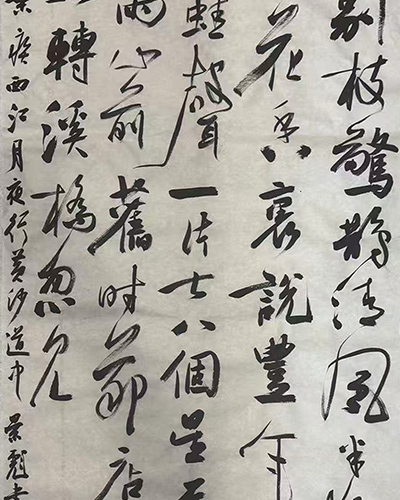 別枝驚鵲清風半
花香裏說豐年
蛙聲一片七八個星天
雨山前舊時茅店
轉溪橋忽見
疾西江月夜行黃沙道中